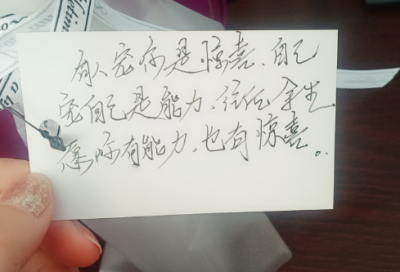 有人宠你是惊喜、自己
宠自己是能力、往后余生
愿你有能力、也有惊喜。